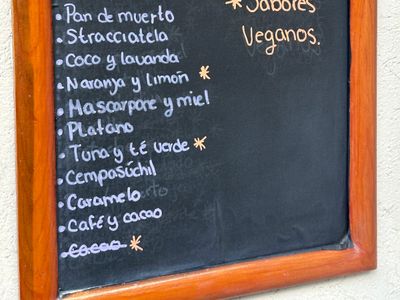 * Sabores
Veganos.
• Pan de muerto
• Stracciatela
• Coco y lavanda
• Naranja y limón *
• Mascarpone y miel
• Platano
• Tuna y té verde *
• Cempasúchil
• Caramelo
• Café y cacao
• Cacao *